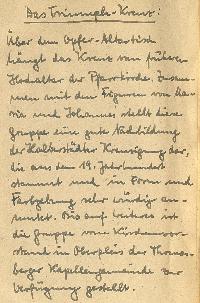 Das Triumph-Kreuz:
Über dem Opfer-Altartisch
hängt das Kreuz vom früheren
Hochaltar der Pfarrkirche. Zusam-
men mit den Figuren von Ma-
ria und Johannes stellt diese
Gruppe eine gute Nachbildung
der Halberstädter Kreuzigung dar,
die aus dem 19. Jahrhundert
stammt und in Form und
Farbgebung sehr würdig an-
mutet. Bis auf weiteres ist
die Gruppe vom Kirchenvor-
stand in Oberpleis der Thomas-
berger Kapellengemeinde zur
Verfügung gestellt.